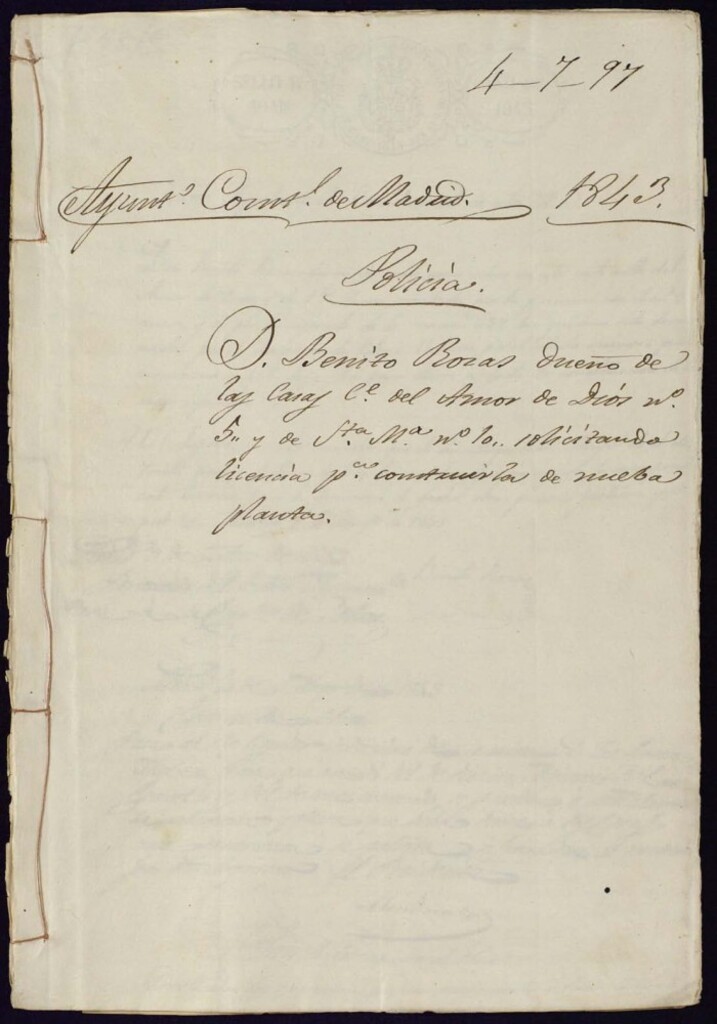 4-7-97
Ayunt.º Const.l de Madrid. 1843.
Policia.
D. Benito Rozas dueño de
las Casas C.e del Amor de Dios n.º
5,, y de S.ta M.a n.º 10,, solicitando
licencia p.a construirla de nueba
planta.